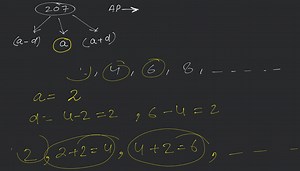 207 AP →
(a-d) a (a+d)
, 4, 6, 8, - - - - -
a = 2
d = 4-2 = 2 , 6-4 = 2
2, 2+2=4, 4+2=6, - - - -